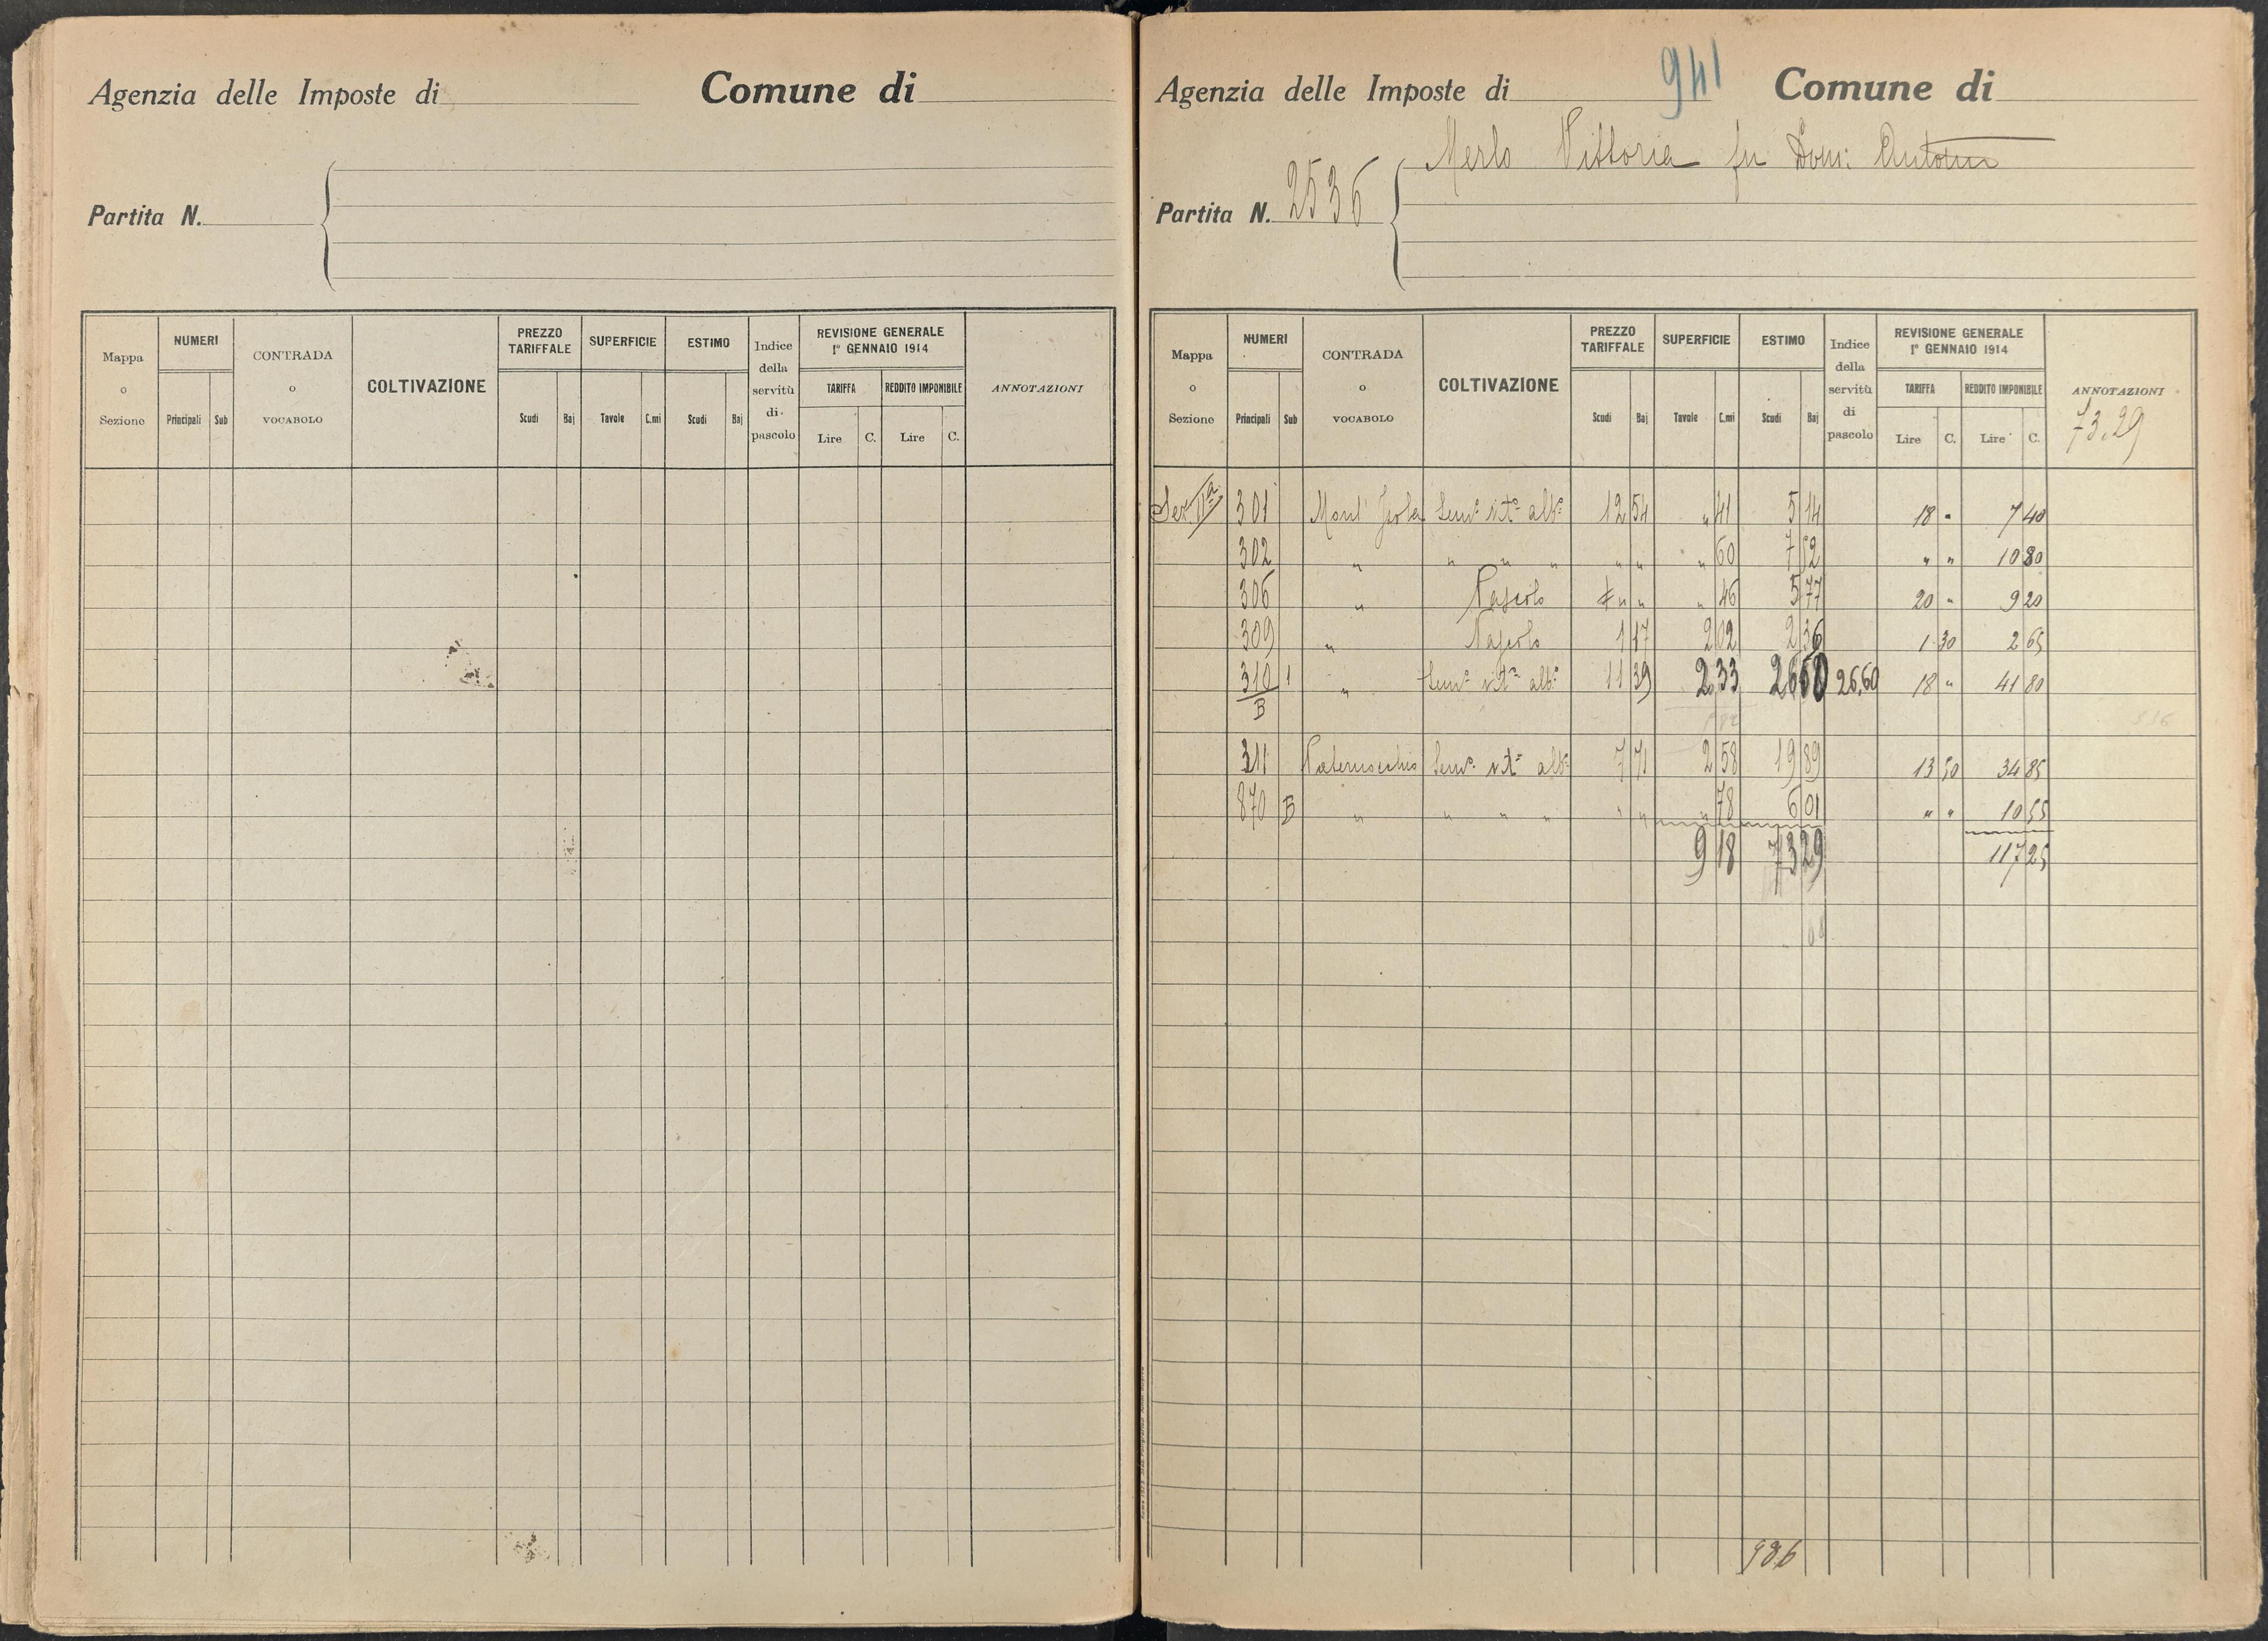 Agenzia delle Imposte di Comune di
Partita N.
Mappa o Sezione NUMERI Principali Sub CONTRADA o VOCABOLO COLTIVAZIONE PREZZO TARIFFALE Scudi Baj SUPERFICIE Tavole C.mi ESTIMO Scudi Baj Indice della servitù di pascolo REVISIONE GENERALE 1° GENNAIO 1914 TARIFFA Lire C. REDDITO IMPONIBILE Lire C. ANNOTAZIONI
941
Agenzia delle Imposte di Comune di
Merlo Vittoria fu Dom: Antonio
Partita N. 2536
Mappa o Sezione NUMERI Principali Sub CONTRADA o VOCABOLO COLTIVAZIONE PREZZO TARIFFALE Scudi Baj SUPERFICIE Tavole C.mi ESTIMO Scudi Baj Indice della servitù di pascolo REVISIONE GENERALE 1° GENNAIO 1914 TARIFFA Lire C. REDDITO IMPONIBILE Lire C. ANNOTAZIONI
73.29
Sez IIa 301 Mont' Sem° vit° alb° 12 54 " 41 5 14 18 " 7 40
302 " " " " " " " 60 7 52 " " 10 80
306 " " " " 46 5 77 20 " 9 20
309 " 1 17 2 02 2 36 1 30 2 65
310/B 1 " Sem° vit° alb° 11 39 2 33 26 60 26,60 18 " 41 80
311 Sem° vit° alb° 7 71 2 58 19 89 13 50 34 85
870 B " " " " " " " 78 6 01 " " 10 55
9 18 73 29 117 25
986